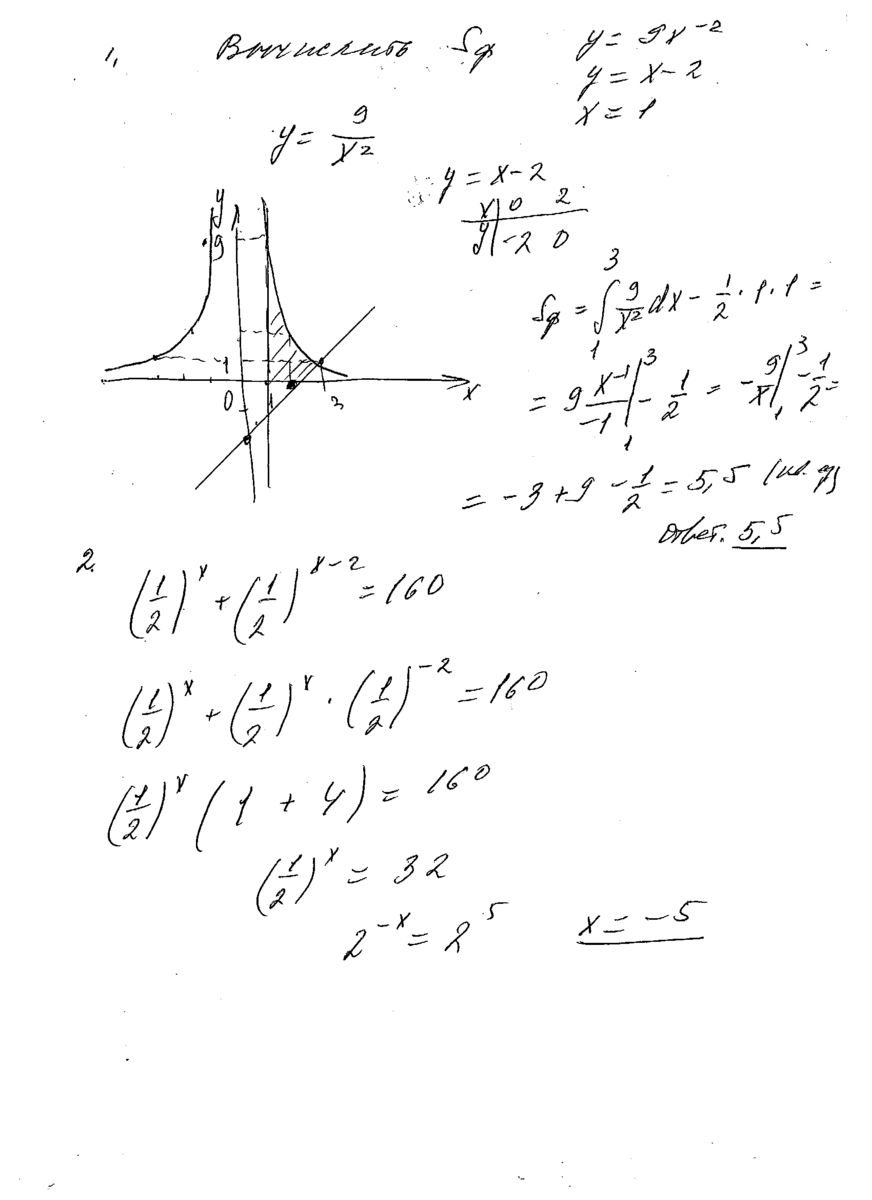 1, Вычислить Sф y = 9x⁻²
y = x - 2
x = 1
y = 9/x²
y = x - 2
x | 0 2
y | -2 0
Sф = ∫₁³ 9/x² dx - 1/2 · 1 · 1 =
= 9 x⁻¹/-1 |₁³ - 1/2 = -9/x |₁³ - 1/2 =
= -3 + 9 - 1/2 = 5,5 (кв. ед)
Ответ. 5,5
y
9
1
0 1 3 x
2.
(1/2)ˣ + (1/2)ˣ⁻² = 160
(1/2)ˣ + (1/2)ˣ · (1/2)⁻² = 160
(1/2)ˣ (1 + 4) = 160
(1/2)ˣ = 32
2⁻ˣ = 2⁵ x = -5